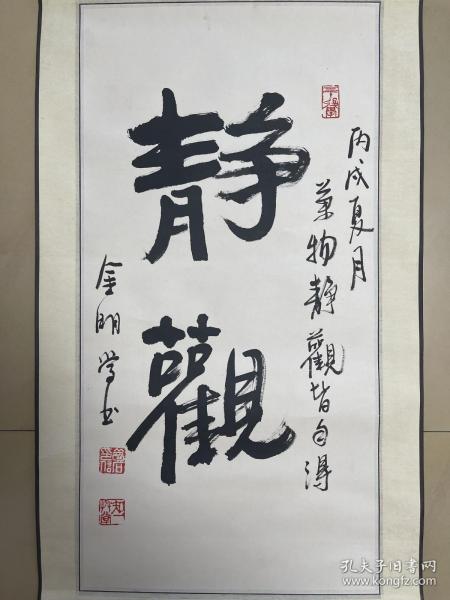 丙戌夏月
万物静觀皆自得
静觀
金明书
孔夫子旧书网
www.kongfz.com